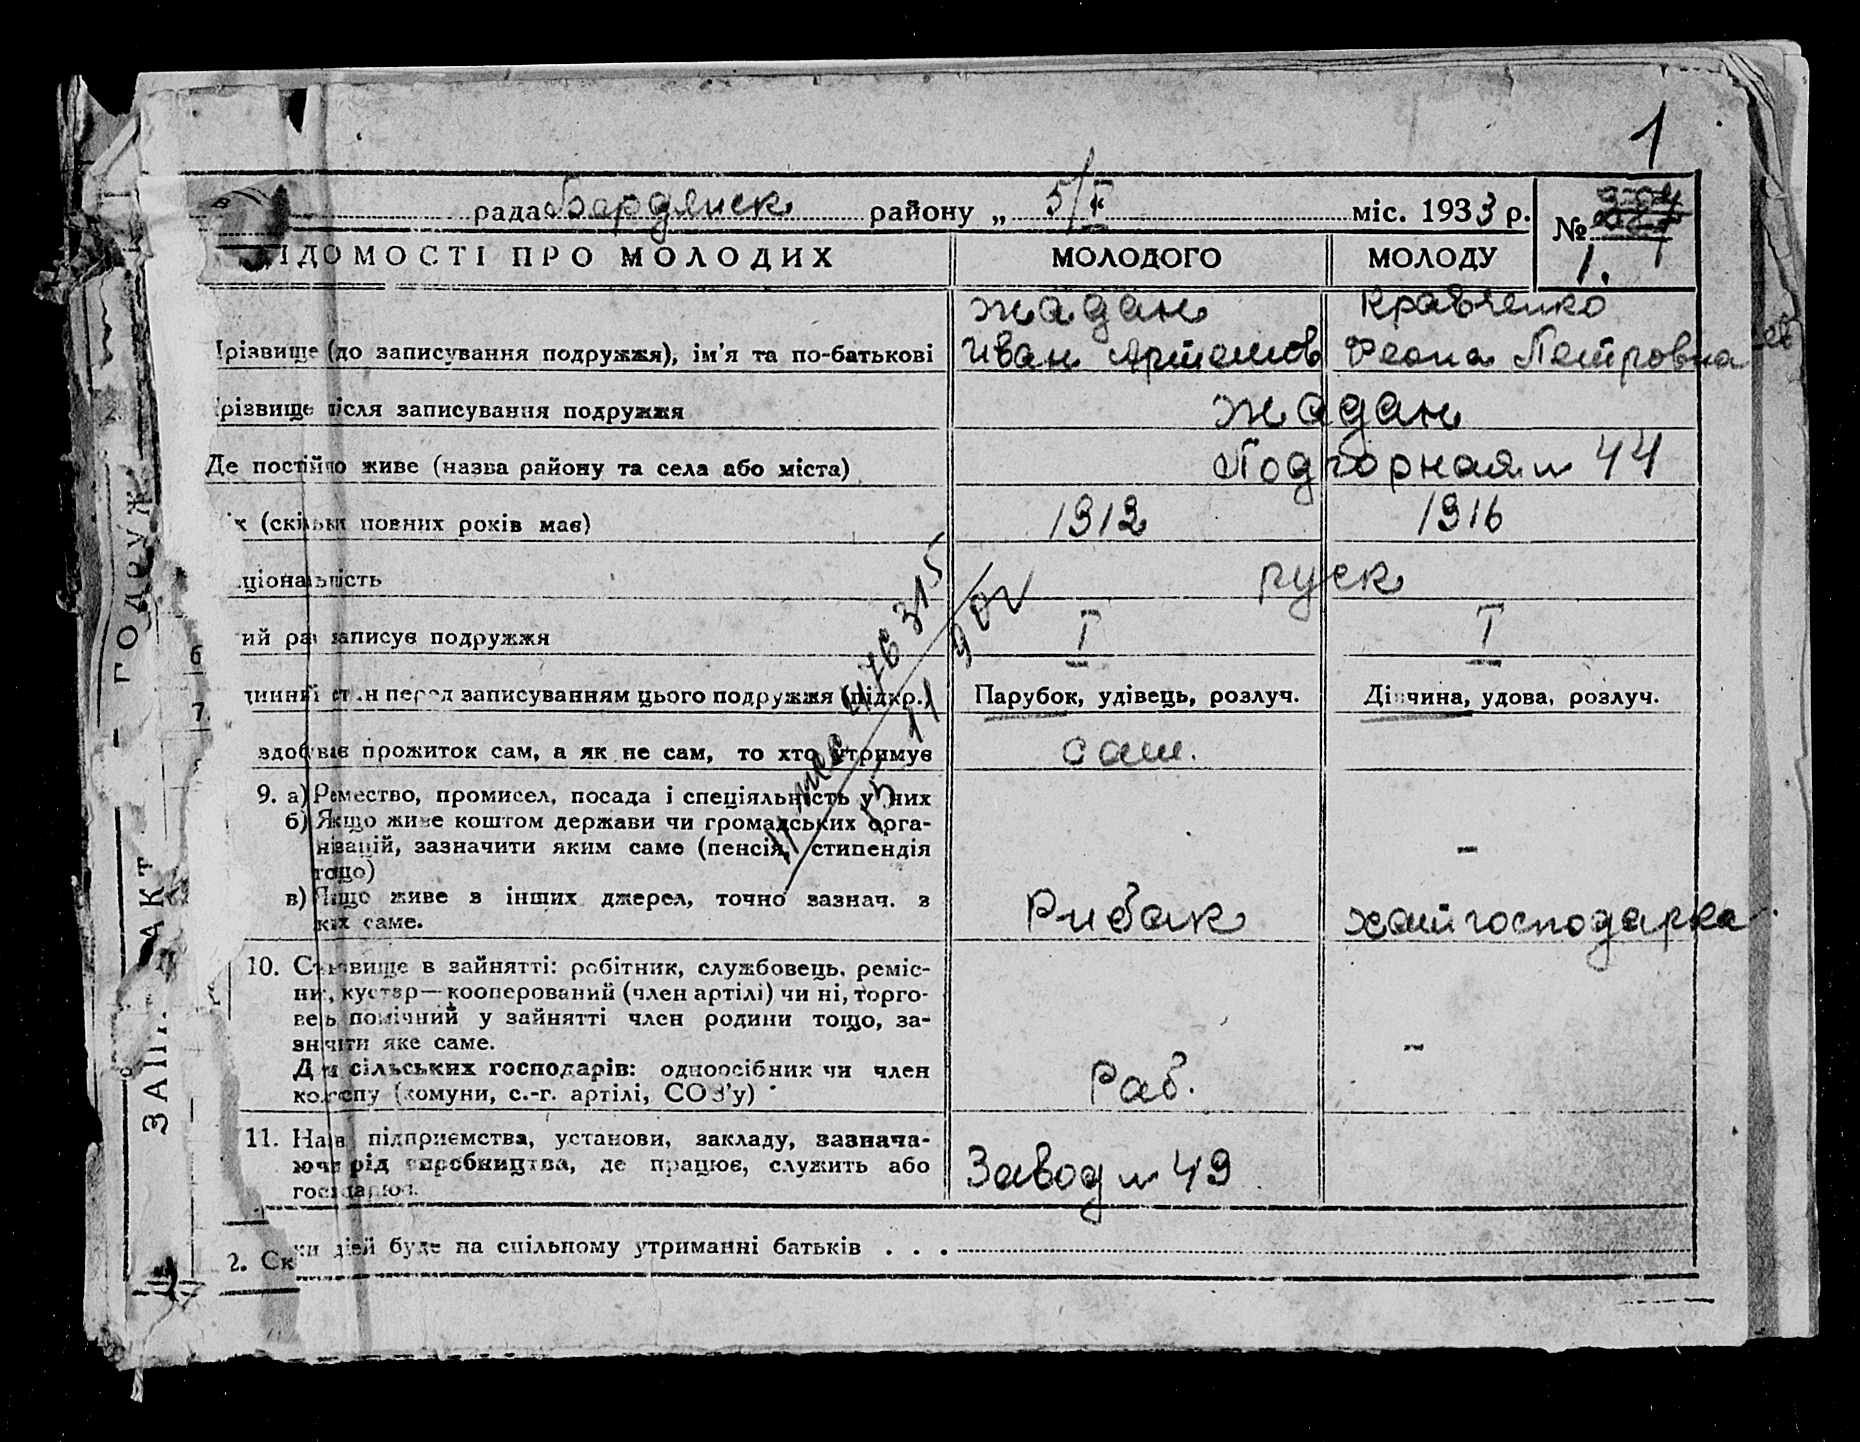 1
рада Бердянск району „ 5/I “ міс. 1933 р.
№ 1.
ІДОМОСТІ ПРО МОЛОДИХ МОЛОДОГО МОЛОДУ
Жадан Кравченко
різвище (до записування подружжя), ім'я та по-батькові Иван Артемов Феона Петровна
різвище після записування подружжя Жадан
Де постійно живе (назва району та села або міста) Подгорная № 44
к (скільки повних років має) 1912 1916
ціональність руск
ий раз записує подружжя I I
6
динний стан перед записуванням цього подружжя (підкр.) Парубок, удівець, розлуч. Дівчина, удова, розлуч.
7.
здобуває прожиток сам, а як не сам, то хто утримує сам.
9. а) Ремество, промисел, посада і спеціяльність у них
б) Якщо живе коштом держави чи громадських орга-
нізацій, зазначити яким саме (пенсія, стипендія -
тощо)
в) Якщо живе з інших джерел, точно зазнач. з
ких саме. Рибак хатгосподарка
10. Становище в зайнятті: робітник, службовець, реміс-
ник, кустар—кооперований (член артілі) чи ні, торго-
вець помічний у зайнятті член родини тощо, за-
значити яке саме. -
Для сільських господарів: одноосібник чи член
колгоспу (комуни, с.-г. артілі, СОЗ'у) Раб.
11. Назв підприємства, установи, закладу, зазнача-
ючи рід виробництва, де працює, служить або Завод № 49
господарює.
2. Ск ки дітей буде на спільному утриманні батьків . . .
ЗАПИ АКТ - ПОДРУЖ